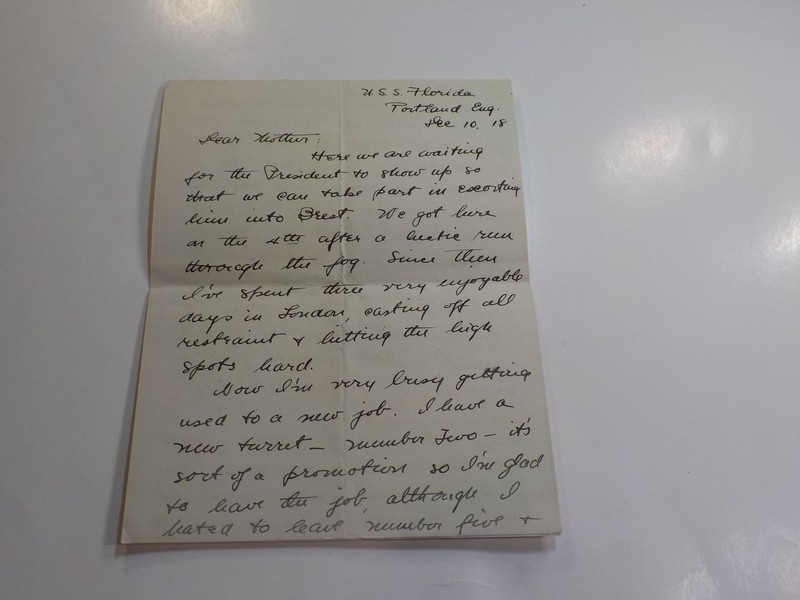 U.S.S. Florida
Portland Eng.
Dec 10, 18
Dear Mother:
Here we are waiting
for the President to show up so
that we can take part in escorting
him into Brest. We got here
on the 4th after a hectic run
through the fog. Since then
I've spent three very enjoyable
days in London, casting off all
restraint & hitting the high
spots hard.
Now I'm very busy getting
used to a new job. I have a
new turret - number Two - it's
sort of a promotion so I'm glad
to have the job, although I
hated to leave number five &